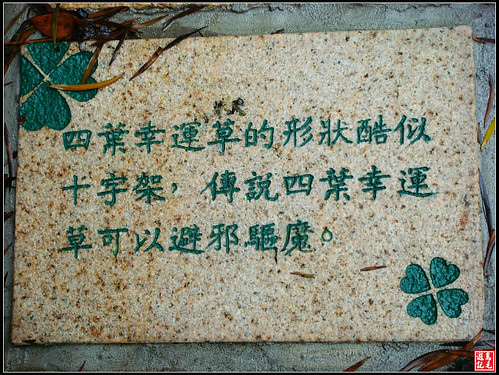 四葉幸運草的形狀酷似
十字架，傳說四葉幸運
草可以避邪驅魔。